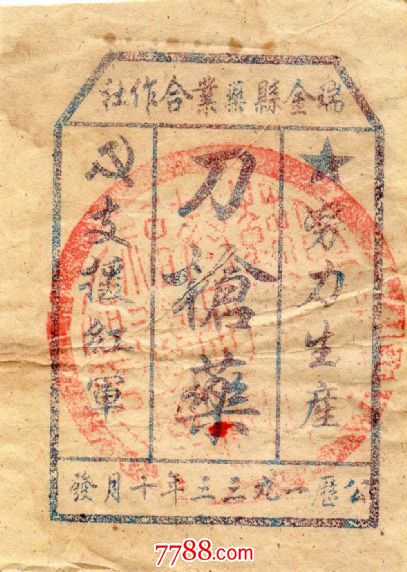 瑞金縣藥業合作社
努力生產
刀槍藥
支援紅軍
公歷一九三三年十月發
7788.com